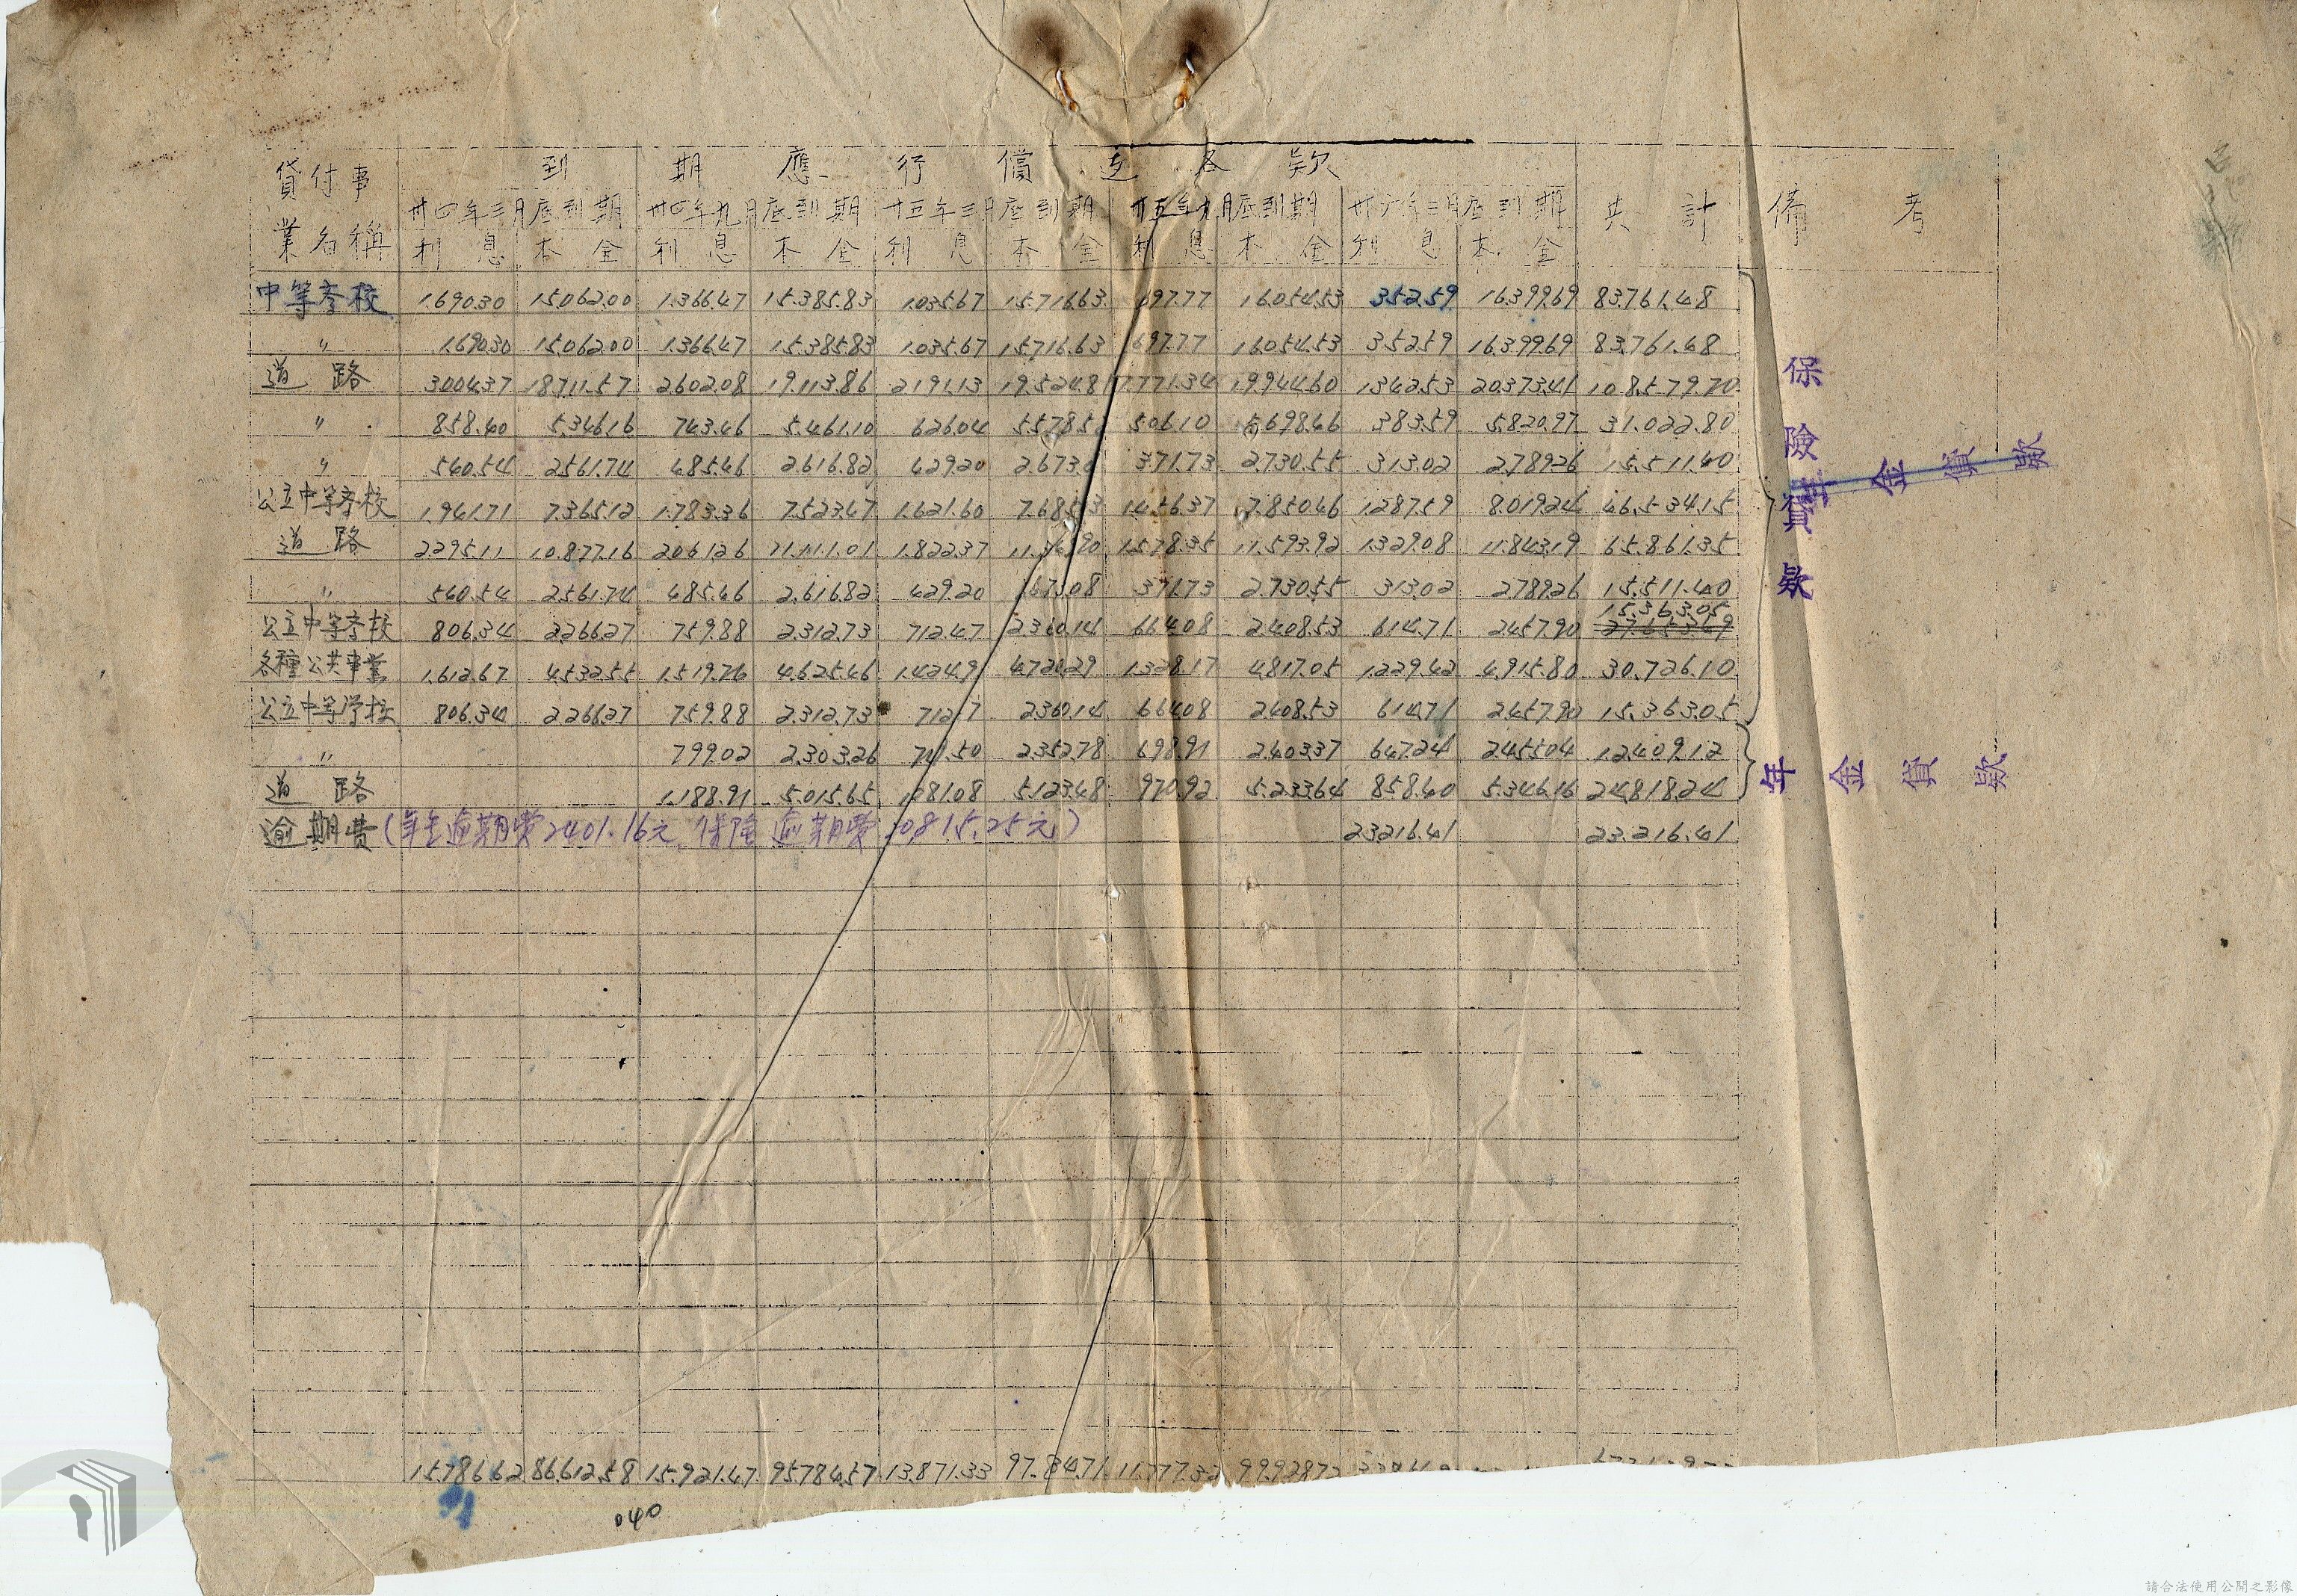 貸付事業名稱 到期應行償還各款 共計 備考
卅四年三月底到期 卅四年九月底到期 卅五年三月底到期 卅五年九月底到期 卅六年三月底到期
利息 本金 利息 本金 利息 本金 利息 本金 利息 本金
中等學校 1.690.30 15.062.00 1.366.47 15.385.83 1.035.67 15.716.63 697.77 16.054.53 352.59 16.399.69 83.761.48
〃 1.690.30 15.062.00 1.366.47 15.385.83 1.035.67 15.716.63 697.77 16.054.53 352.59 16.399.69 83.761.48
道路 3.004.37 18.711.57 2.602.08 19.113.86 2.191.13 19.524.81 1.771.34 19.944.60 1.342.53 20.373.41 108.579.70
〃 858.40 5.346.16 743.46 5.461.10 626.04 5.578.5 506.10 5.698.46 383.59 5.820.97 31.022.80
〃 540.54 2.561.74 485.46 2.616.82 429.20 2.673.0 371.73 2.730.55 313.02 2.789.26 15.511.40
公立中等學校 1.941.71 7.365.12 1.783.36 7.523.47 1.621.60 7.685.3 1.456.37 7.850.46 1.287.59 8.019.24 46.534.15
道路 2.295.11 10.877.16 2.061.26 11.111.01 1.822.37 11.349.90 1.578.35 11.593.92 1.329.08 11.843.19 65.861.35
〃 540.54 2.561.74 485.46 2.616.82 429.20 2.673.08 371.73 2.730.55 313.02 2.789.26 15.511.40
公立中等學校 806.34 2.266.27 759.88 2.312.73 712.47 2.360.14 664.08 2.408.53 614.71 2.457.90 15.363.05
各種公共事業 1.612.67 4.532.55 1.519.76 4.625.46 1.424.9 4.720.29 1.328.17 4.817.05 1.229.42 4.915.80 30.726.10
公立中等学校 806.34 2.266.27 759.88 2.312.73 712.7 2.360.14 664.08 2.408.53 614.71 2.457.90 15.363.05
〃 799.02 2.303.26 749.50 2.352.78 698.91 2.403.37 647.24 2.455.04 12.409.12
道路 1.188.91 5.015.65 1.081.08 5.123.48 970.92 5.233.64 858.40 5.346.16 24.818.24
逾期費(年金逾期費2401.16元 保險逾期費20815.25元) 23.216.41 23.216.41
保險貸款
年金貸款
年金貸款
15.786.62 86.612.58 15.921.47 95.784.57 13.871.33 97.834.71 11.777.32 99.928.72
040
請合法使用公開之影像